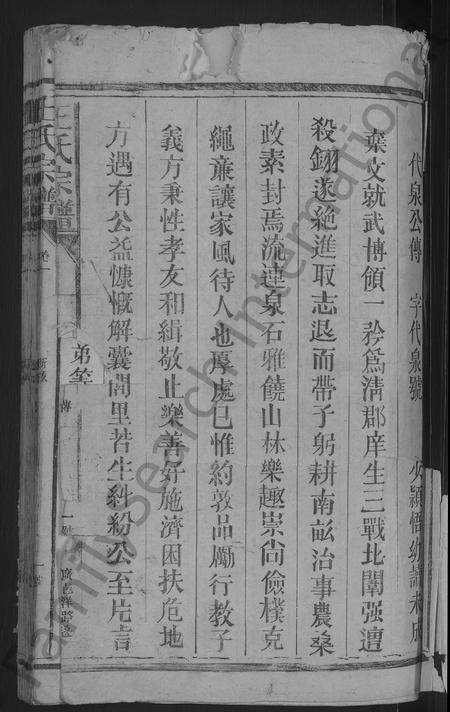 代泉公傳 字代泉號 少穎悟幼讀未成
棄文就武博領一衿為清郡庠生三戰北闈强遭
殺鈏遂絶進取志退而帶子躬耕南畝治事農桑
政素封焉流連泉石雅饒山林樂趣崇尚儉樸克
繩廉讓家風待人也厚處己惟約敦品勵行教子
義方秉性孝友和緝敬止樂善好施濟困扶危地
方遇有公益慷慨解囊閭里若生糾紛公至片言
王氏宗譜
卷一
弟等
傳
FamilySearch International